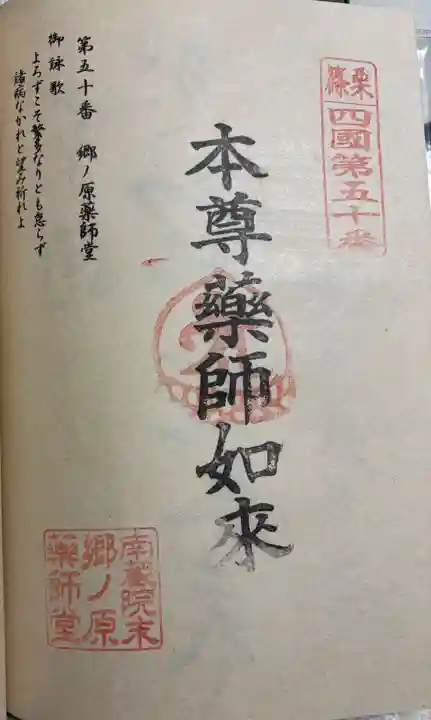 篠栗
四國第五十番
本尊藥師如來
第五十番　郷ノ原藥師堂
御詠歌
よろずこそ繁多なりとも怠らず
諸病なかれと望み祈れよ
南蔵院末
郷ノ原
藥師堂